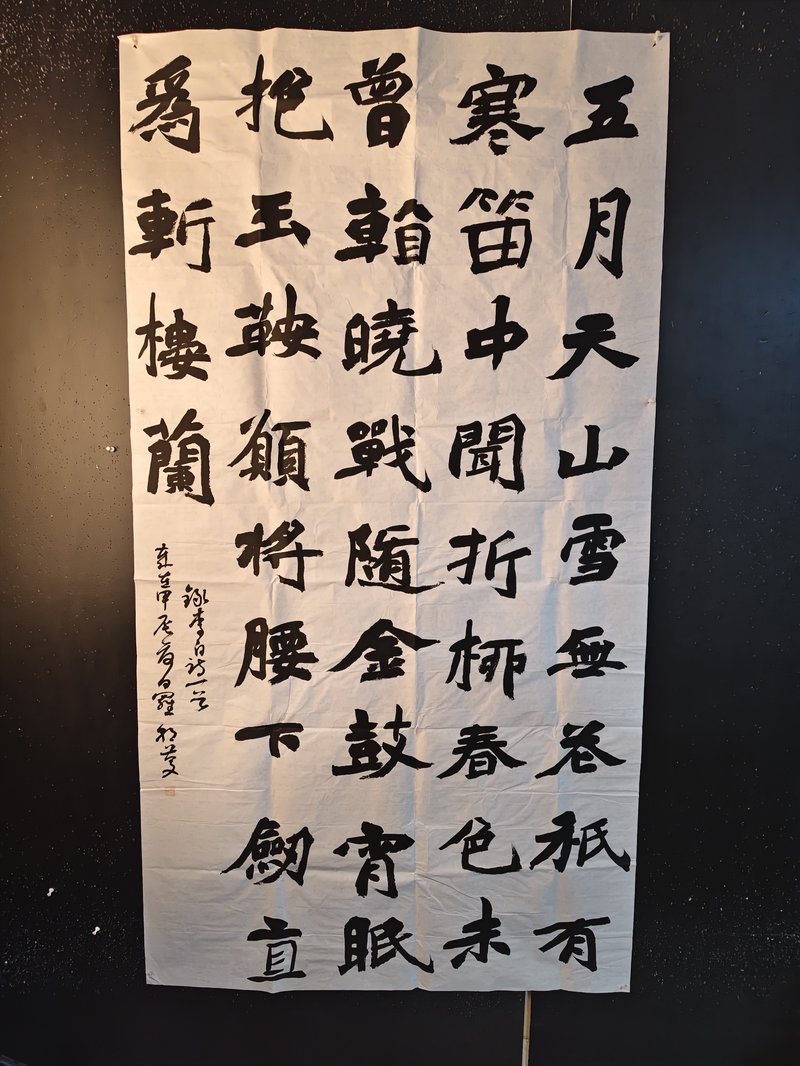 五月天山雪無花祇有
寒笛中聞折柳春色未
曾看曉戰隨金鼓宵眠
抱玉鞍願將腰下劒直
爲斬樓蘭
錄李白詩一首
甲辰日羅